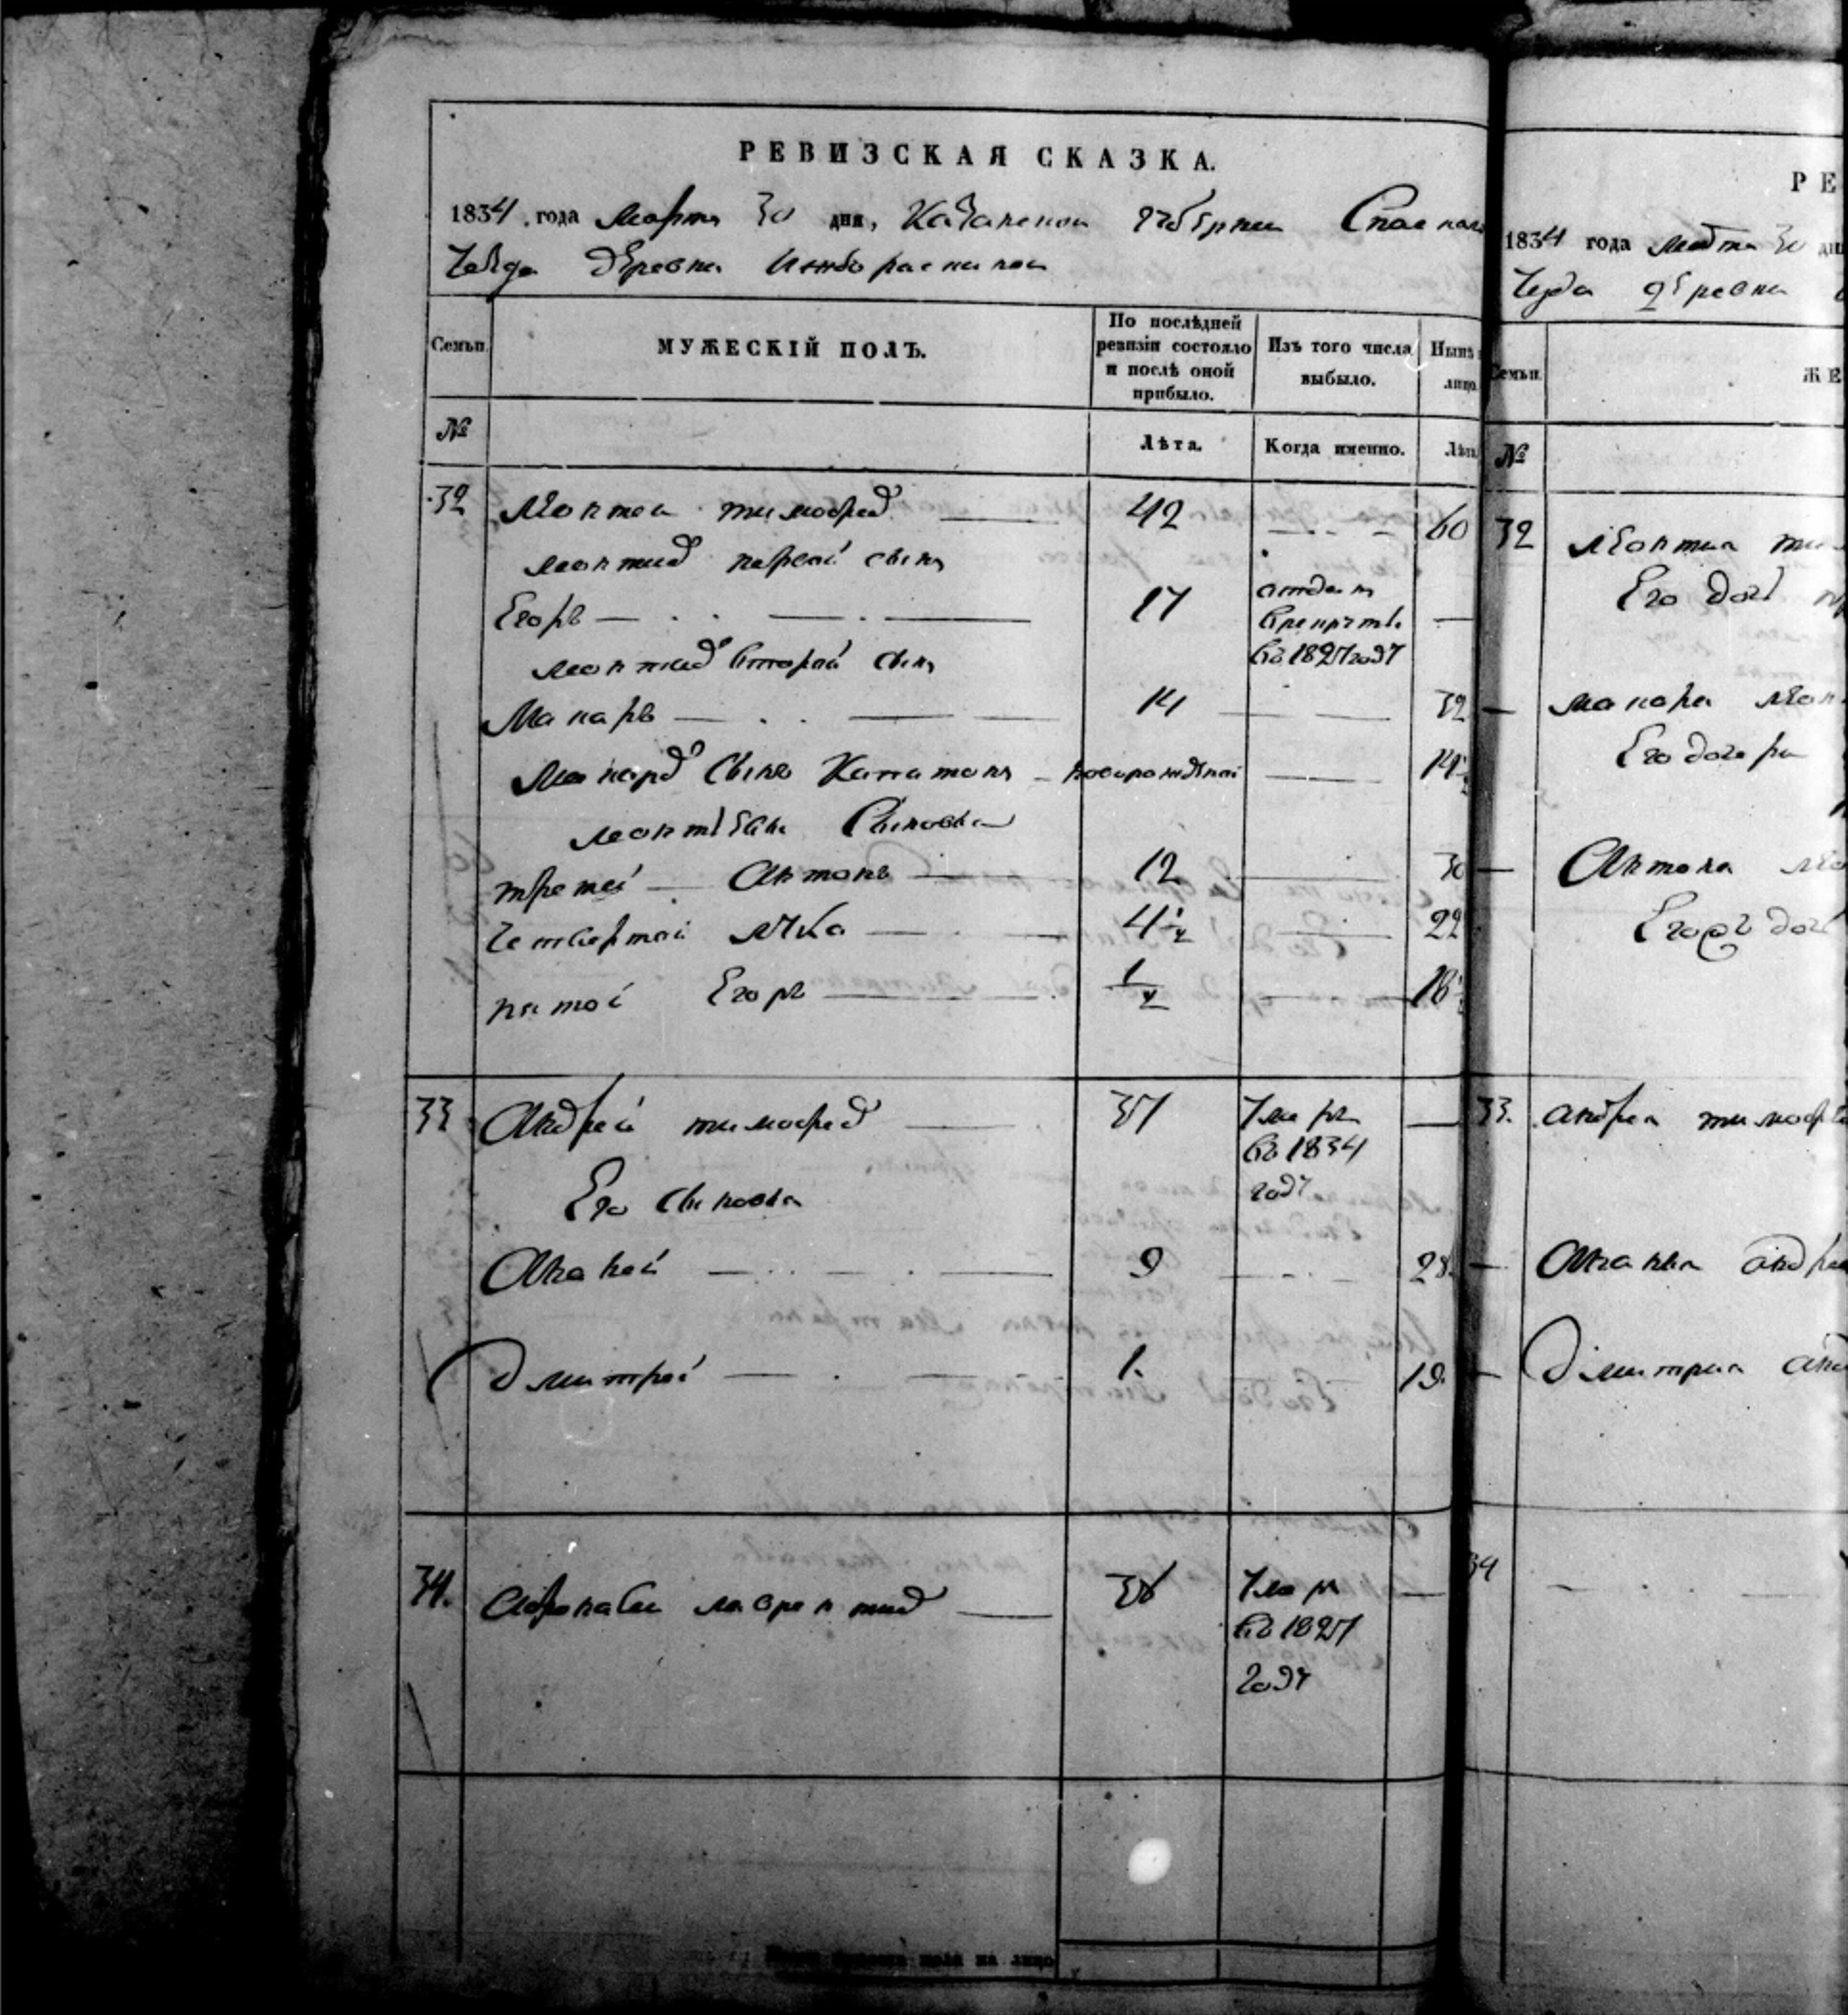 РЕВИЗСКАЯ СКАЗКА.
1834 года марта 30 дня, Казанской губерни Спаского
уезда деревни
Семьи.
МУЖЕСКІЙ ПОЛЪ.
По послѣдней ревизіи состояло и послѣ оной прибыло.
Изъ того числа выбыло.
Нынѣ
лицо
№
Лѣта.
Когда именно.
Лѣта
32 Леонтей тимофеев 42 60
леонтиев первой сынъ
Егоръ 17 отдан в рекруты въ 1827 году
леонтиев второй сынъ
Макаръ 14 32
Макаров сынъ новорожденной 14½
леонтьевы Сыновья
третей Антонъ 12 30
четвертой лука 4½ 22
пятой Егоръ ½ 18½
33 Андрей тимофеев 37 умре въ 1834 году
Его сыновья
Ананей 9 28
Дмитрей 1. 19.
34. лаврентиев 38 умре въ 1827 году
РЕ
1834 года марта 30 дн
уезда деревни
Семьи.
ЖЕ
№
32 леонтия
Его дочь
Макара леон
Его дочери
Антона
Егора дочь
33. андрея тимофе
Анания андре
Дмитрия анд
34